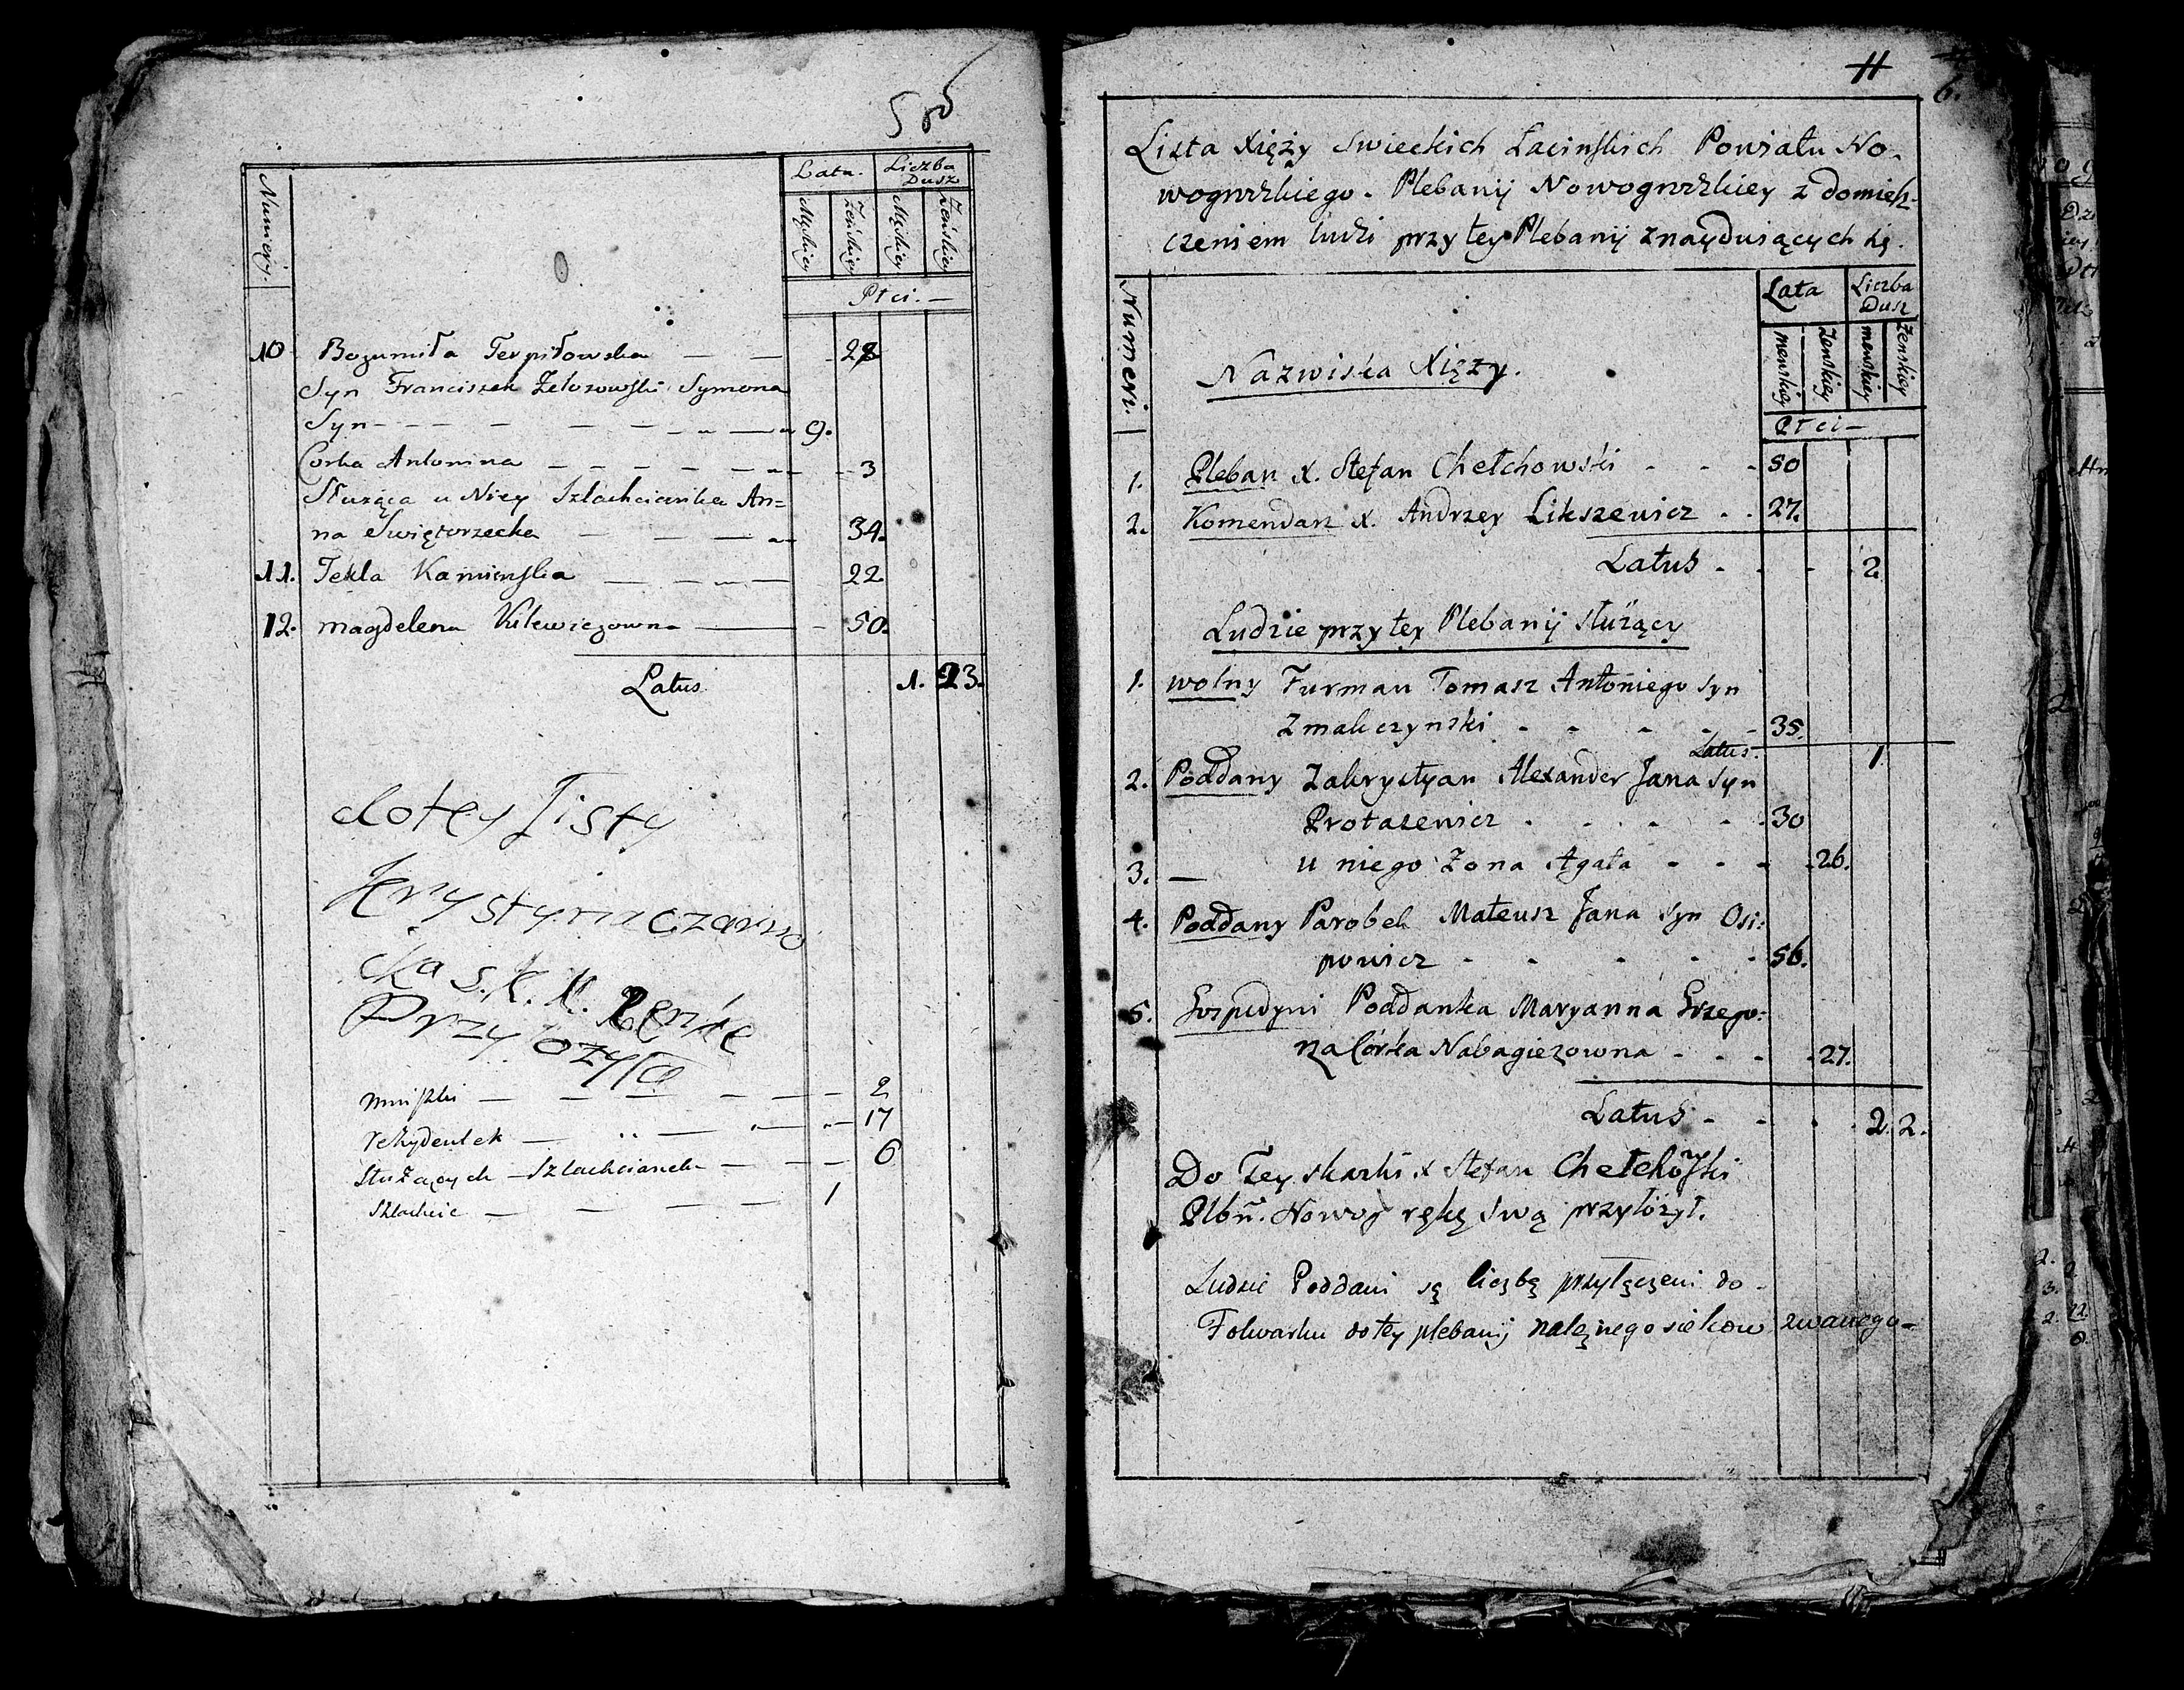 Numery.
Lata. Liczba Dusz
Męskiey Żeńskiey Męskiey Żeńskiey
Płci. —
10 Bogumiła Terpiłowska — — 28
Syn Franciszek Symona
Syn - - - — — — 9.
Corka Antonina — — — — — 3
Służąca u Niey Szlachcianka An=
na Swiętorzecka — — — 34.
11. Tekla Kamieńska — — — 22.
12. magdelena Kilewiczowna — 50.
Latus. 1. 23.
do tey Listy
Krystyna Czarno
cka s. K. N. Renke
Przyłozyła
mniszki — — — — — — 2
rezydentek — — — — 17
Służących — Szlachcianek — — — 6
Szlachcic — — — — 1
11
6.
Lista Xięży Swieckich Łacinskich Powiatu No-
wogrodzkiego. Plebanij Nowogrodzkiey z domiesz-
czeniem ludzi przy tey Plebanij znaydusiących się.
Numeri.
Nazwiska Xięży.
Lata Liczba Dusz
menskiey Żenskiey menskiey Żenskiey
Płci —
1. Pleban X. Stefan Chełchowski - - - 50
2. Komendarz X. Andrzey Likszewicz . . 27.
Latus - - - 2.
Ludzie przy tey Plebanij służący
1. wolny Furman Tomasz Antoniego syn
Zmaliczynski - - - - - 35.
Latus. 1
2. Poddany Zakrystyan Alexander Jana syn
Protasewicz . . . - - 30
3. — u niego Zona Agata - - - - 26.
4. Poddany Parobek Mateusz Jana syn Osi:
powicz - - - - - 56.
5. Gospodyni Poddanka Maryanna Grzego:
rza Córka Nabagiezowna - - - - 27.
Latus - - - . 2. 2.
Do Tey skazki X Stefan Chełchowski
Plbñ. Nowog rękę swą przyłożył.
Ludzie Poddani są liczbą przyłączeni do -
Folwarku do tey plebanij należnego zwanego -